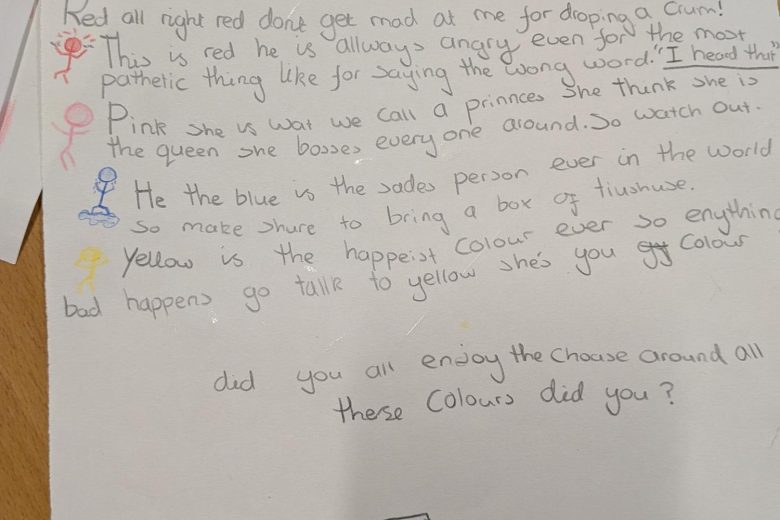 Red all right red dont get mad at me for droping a Crum!
This is red he is allways angry even for the most
pathetic thing like for saying the wong word. "I heard that"
Pink she is wat we call a prinnces she thunk she is
the queen she bosses every one around. So watch out.
He the blue is the sades person ever in the world
so make shure to bring a box of tiushuse.
Yellow is the happeist Colour ever so enything
bad happens go tallk to yellow she's you Colour
did you all enjoy the chouse around all
these Colours did you?